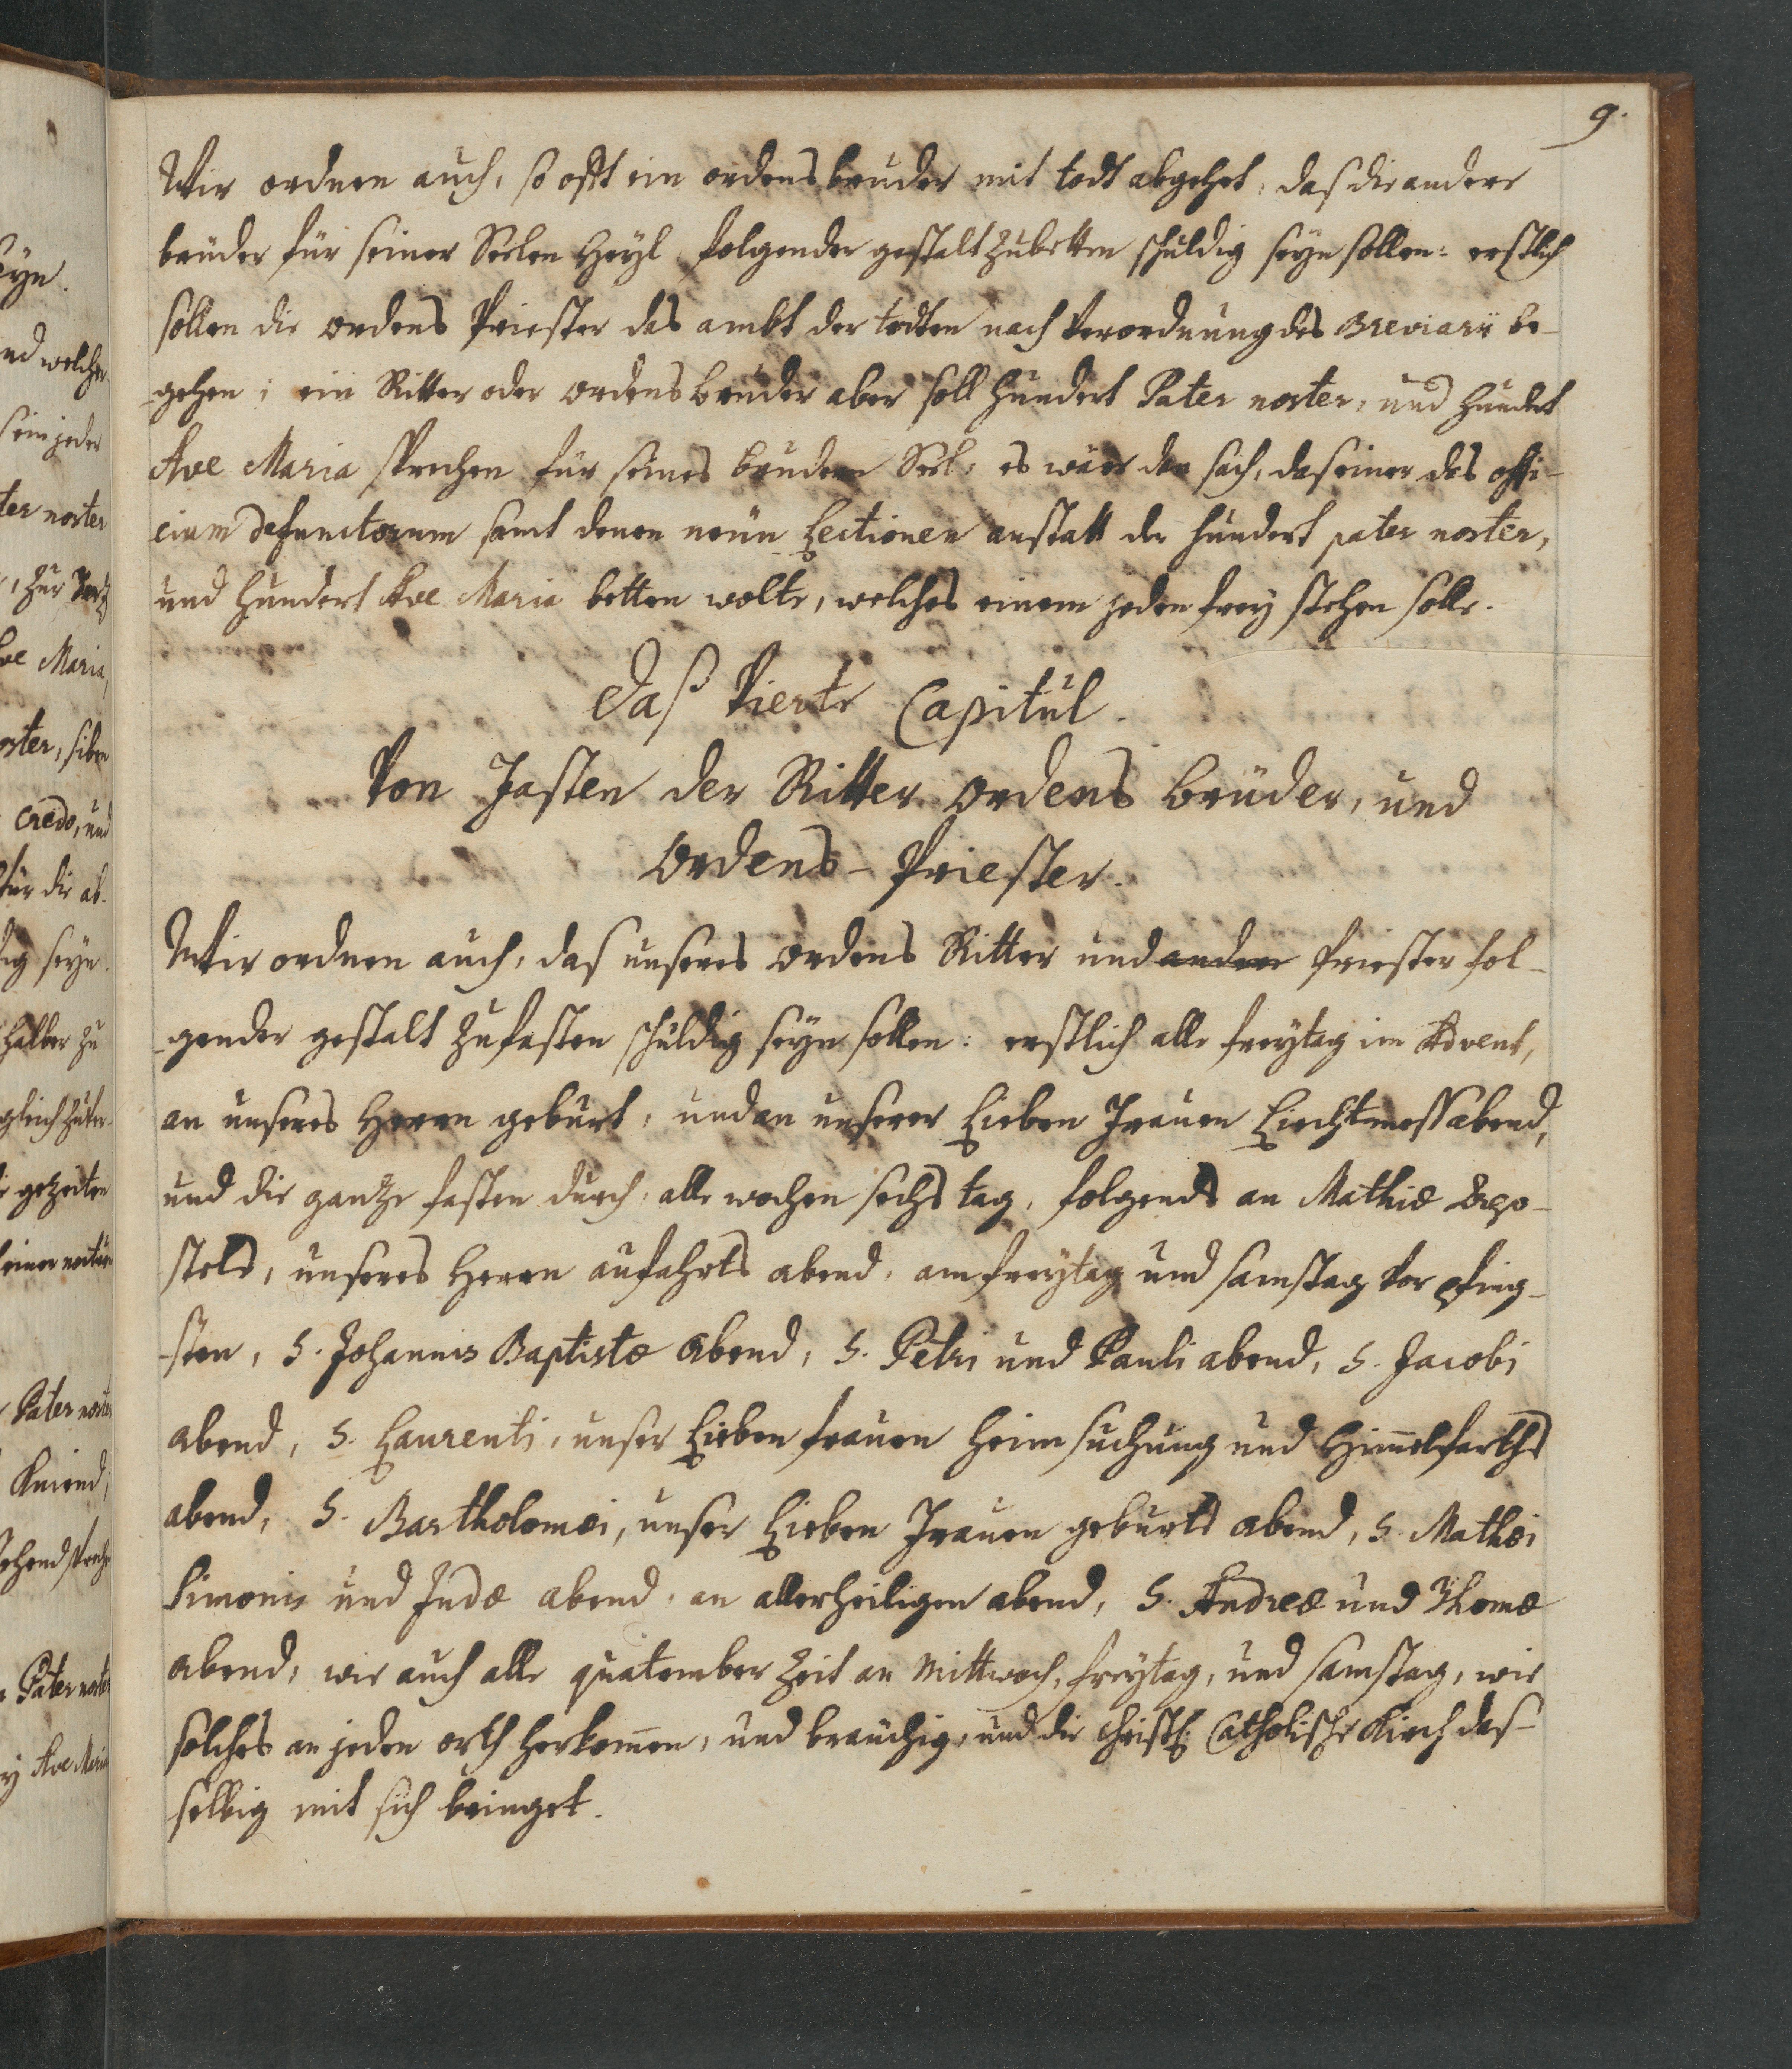 9.
Wir ordnen auch, so offt ein ordensbruder mit todt abgehet, das die andere
brüder für seiner Seelen Heyl folgender gestalt zubetten schuldig seyn sollen: erstlich
sollen die ordens Priester das ambt der todten nach verordnung des Breviarii be-
gehen; ein Ritter oder ordensbruder aber soll hundert Pater noster, und hundert
Ave Maria sprechen für seines brudern Seel, es wäre den sach, das einer das offi-
cium defunctorum samt denen neün Lectionen anstatt der hundert pater noster,
und hundert Ave Maria betten wolte, welches einem jeden frey stehen solle.
Daß Vierte Capitul.
Von Fasten der Ritter ordens brüder, und
Ordens-Priester.
Wir ordnen auch, das unseres ordens Ritter und andere Priester fol-
gender gestalt zufasten schuldig seyn sollen: erstlich alle freytag im Advent,
an unseres Herrn geburt, und an unserer Lieben Frauen Liechtmessabend,
und die gantze fasten durch, alle wochen sechs tag, folgends an Mathiæ Apo-
stels, unseres Herrn auffahrts abend, am freytag und samstag vor pfing-
sten, S. Johannis Baptistæ abend, S. Petri und Pauli abend, S. Jacobi
abend, S. Laurenti, unser Lieben frauen heimsuchung und Him̄elfarths
abend, S. Bartholomæi, unser Lieben Frauen geburts abend, S. Mathæi
Simonis und Judæ abend, an allerheiligen abend, S. Andreæ und Thomæ
abend, wie auch alle quatember Zeit an Mittwoch, freytag, und samstag, wie
solches an jeden orth herkom̄en, und brauchig, und die Christl: Catholische Kirch das-
selbig mit sich bringet.
seyn.
und welcher
ein jeder
ter noster
Ave Maria,
oster, siben
Credo, und
für die ab-
dig seyn.
halber zu
gezeiten
Pater noster
Kniend,
Pater noster
Ave Maria